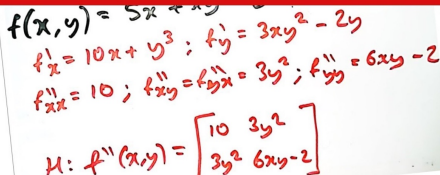 f(x,y) = 5x
f'x = 10x + y³ ; f'y = 3xy² - 2y
f''xx = 10 ; f''xy = f''yx = 3y² ; f''yy = 6xy - 2
H: f''(x,y) = [10 3y²
3y² 6xy-2]